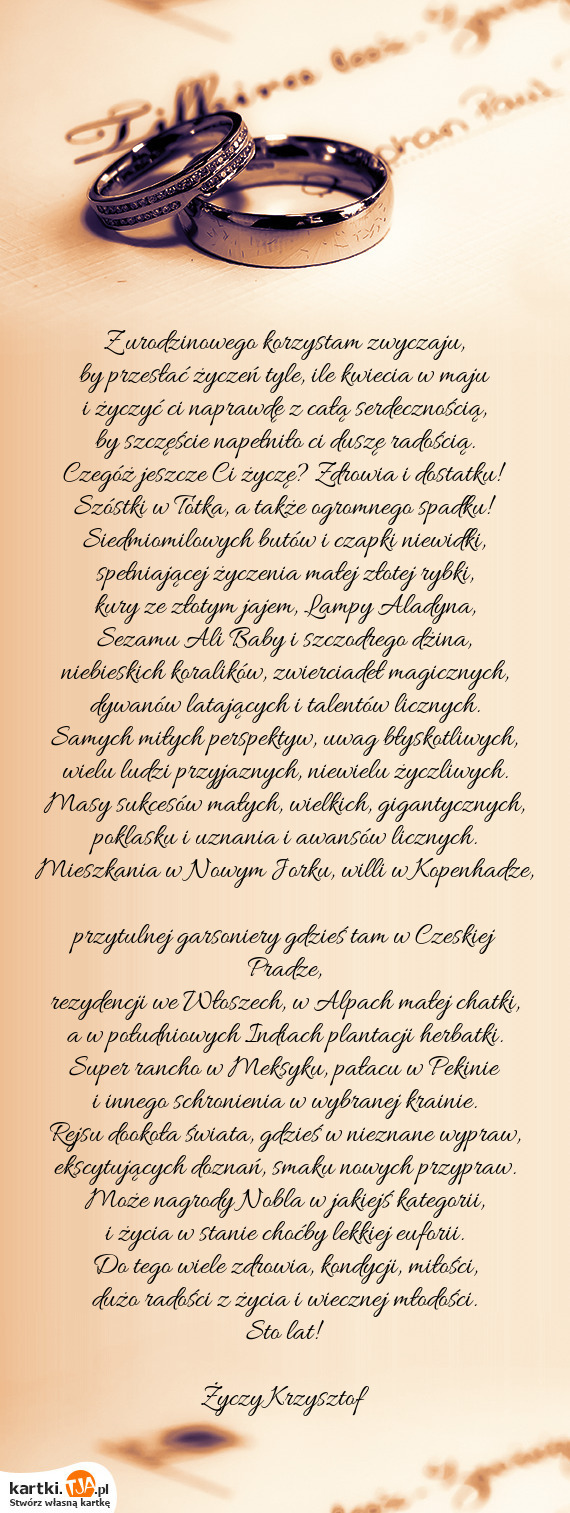 Z urodzinowego korzystam zwyczaju,
by przesłać życzeń tyle, ile kwiecia w maju
i życzyć ci naprawdę z całą serdecznością,
by szczęście napełniło ci duszę radością.
Czegóż jeszcze Ci życzę? Zdrowia i dostatku!
Szóstki w Totka, a także ogromnego spadku!
Siedmiomilowych butów i czapki niewidki,
spełniającej życzenia małej złotej rybki,
kury ze złotym jajem, Lampy Aladyna,
Sezamu Ali Baby i szczodrego dżina,
niebieskich koralików, zwierciadeł magicznych,
dywanów latających i talentów licznych.
Samych miłych perspektyw, uwag błyskotliwych,
wielu ludzi przyjaznych, niewielu życzliwych.
Masy sukcesów małych, wielkich, gigantycznych,
poklasku i uznania i awansów licznych.
Mieszkania w Nowym Jorku, willi w Kopenhadze,
przytulnej garsoniery gdzieś tam w Czeskiej
Pradze,
rezydencji we Włoszech, w Alpach małej chatki,
a w południowych Indiach plantacji herbatki.
Super rancho w Meksyku, pałacu w Pekinie
i innego schronienia w wybranej krainie.
Rejsu dookoła świata, gdzieś w nieznane wypraw,
ekscytujących doznań, smaku nowych przypraw.
Może nagrody Nobla w jakiejś kategorii,
i życia w stanie choćby lekkiej euforii.
Do tego wiele zdrowia, kondycji, miłości,
dużo radości z życia i wiecznej młodości.
Sto lat!
Życzy Krzysztof
kartki.TJA.pl
Stwórz własną kartkę